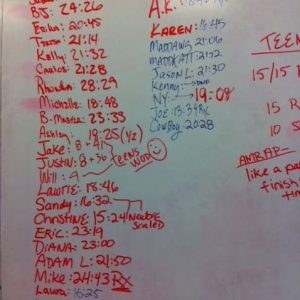 BJS: 24:26
Erika: 20:45
21:14
Kelly: 21:32
Carlos: 21:28
Rhonda: 28:29
Michelle: 18:48
B. 23:33
Ashley: 19:25 (42)
Jake: 8 + 41
Justin: 8 + 36 TEENS WOD
Will: 9
LAWRIE: 18:46
Sandy: 16:32
CHRISTINE: 15:24 Newbie Scaled
ERIC: 23:19
DIANA: 23:00
ADAM L: 21:50
Mike: 24:43 RX
Laura: 16:25
A.K.
KAREN: 18:45
MATT AWG 21:06
MATT KATT: 21:12
JASON L: 21:30
Kenny
NY: 19:08
JOE: 13:39 RX
Cowboy 20:28
TEEN
15/15
15 R
10 S
AMRAP
like a pa
finish
tim